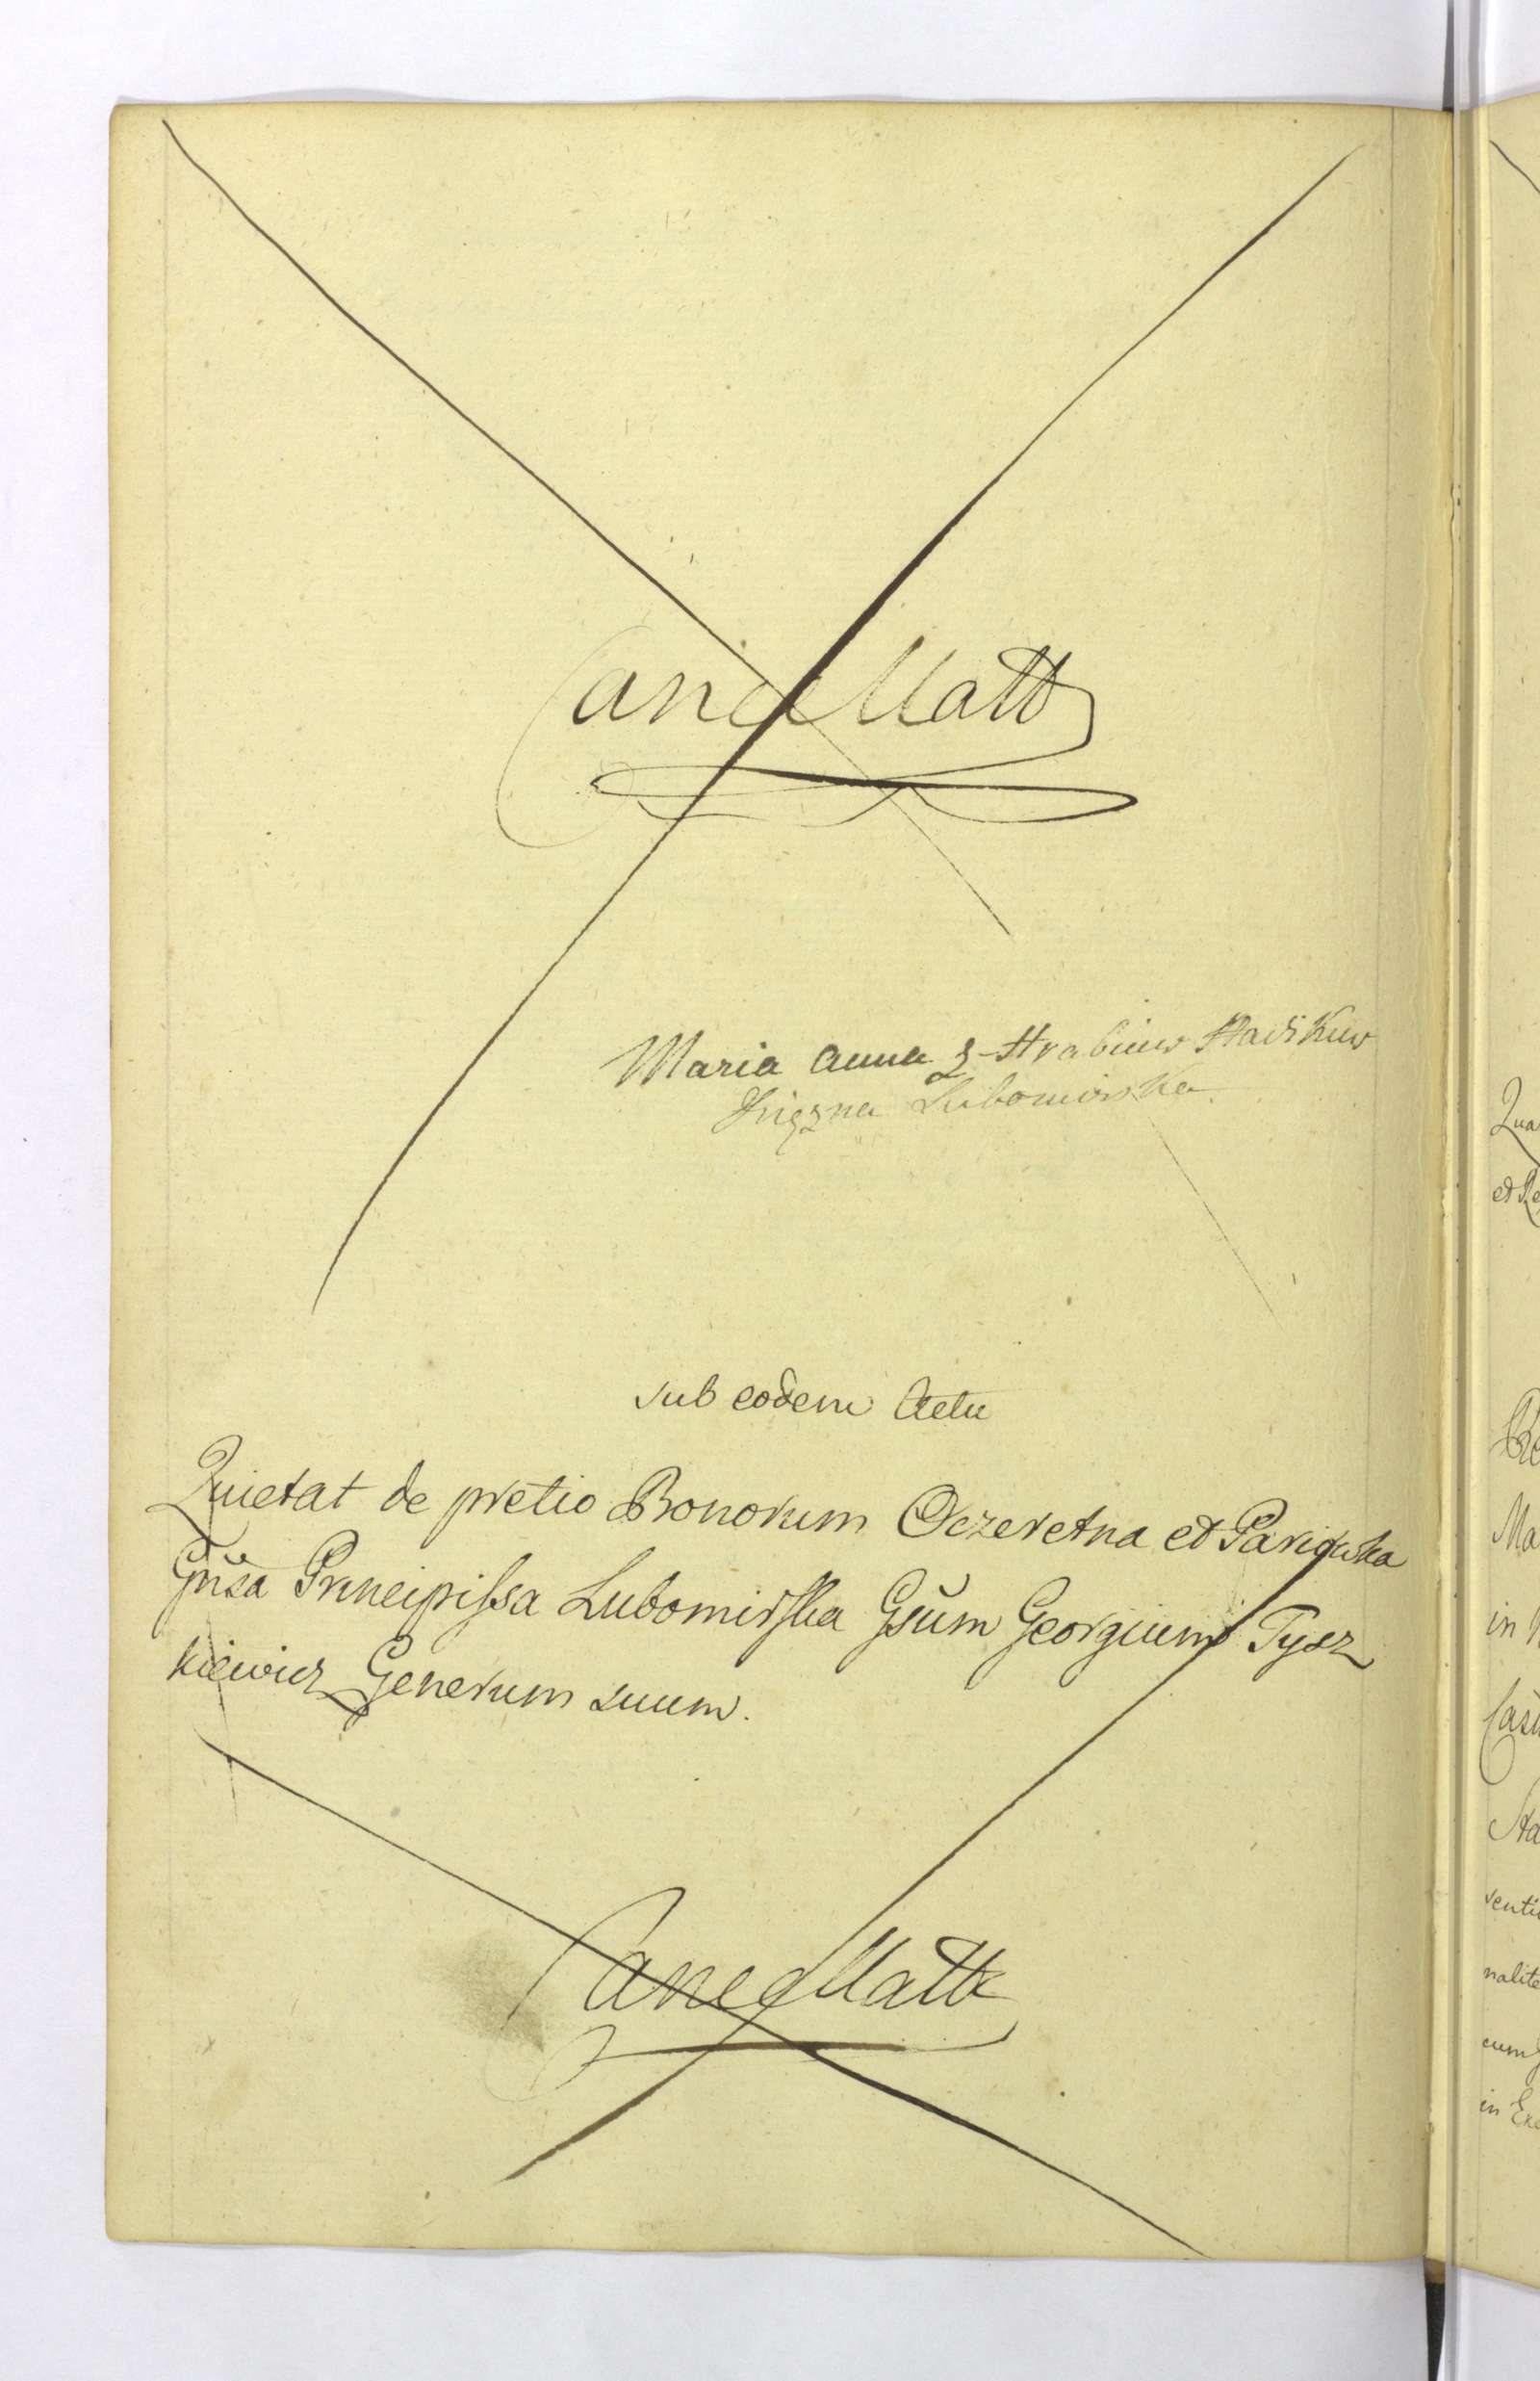 Maria Anna z Hrabiuw Hadikuw
Xiężna Lubomirska
sub eodem Actu
Quietat de pretio Bonorum Oczeretna et Pariowka
Gnsa Principissa Lubomirska Gsum Georgium Tysz
kiewicz Generum suum.
Qua
et Re
Ma
in
Cast
Sta
senti
nalite
cum
in Exe